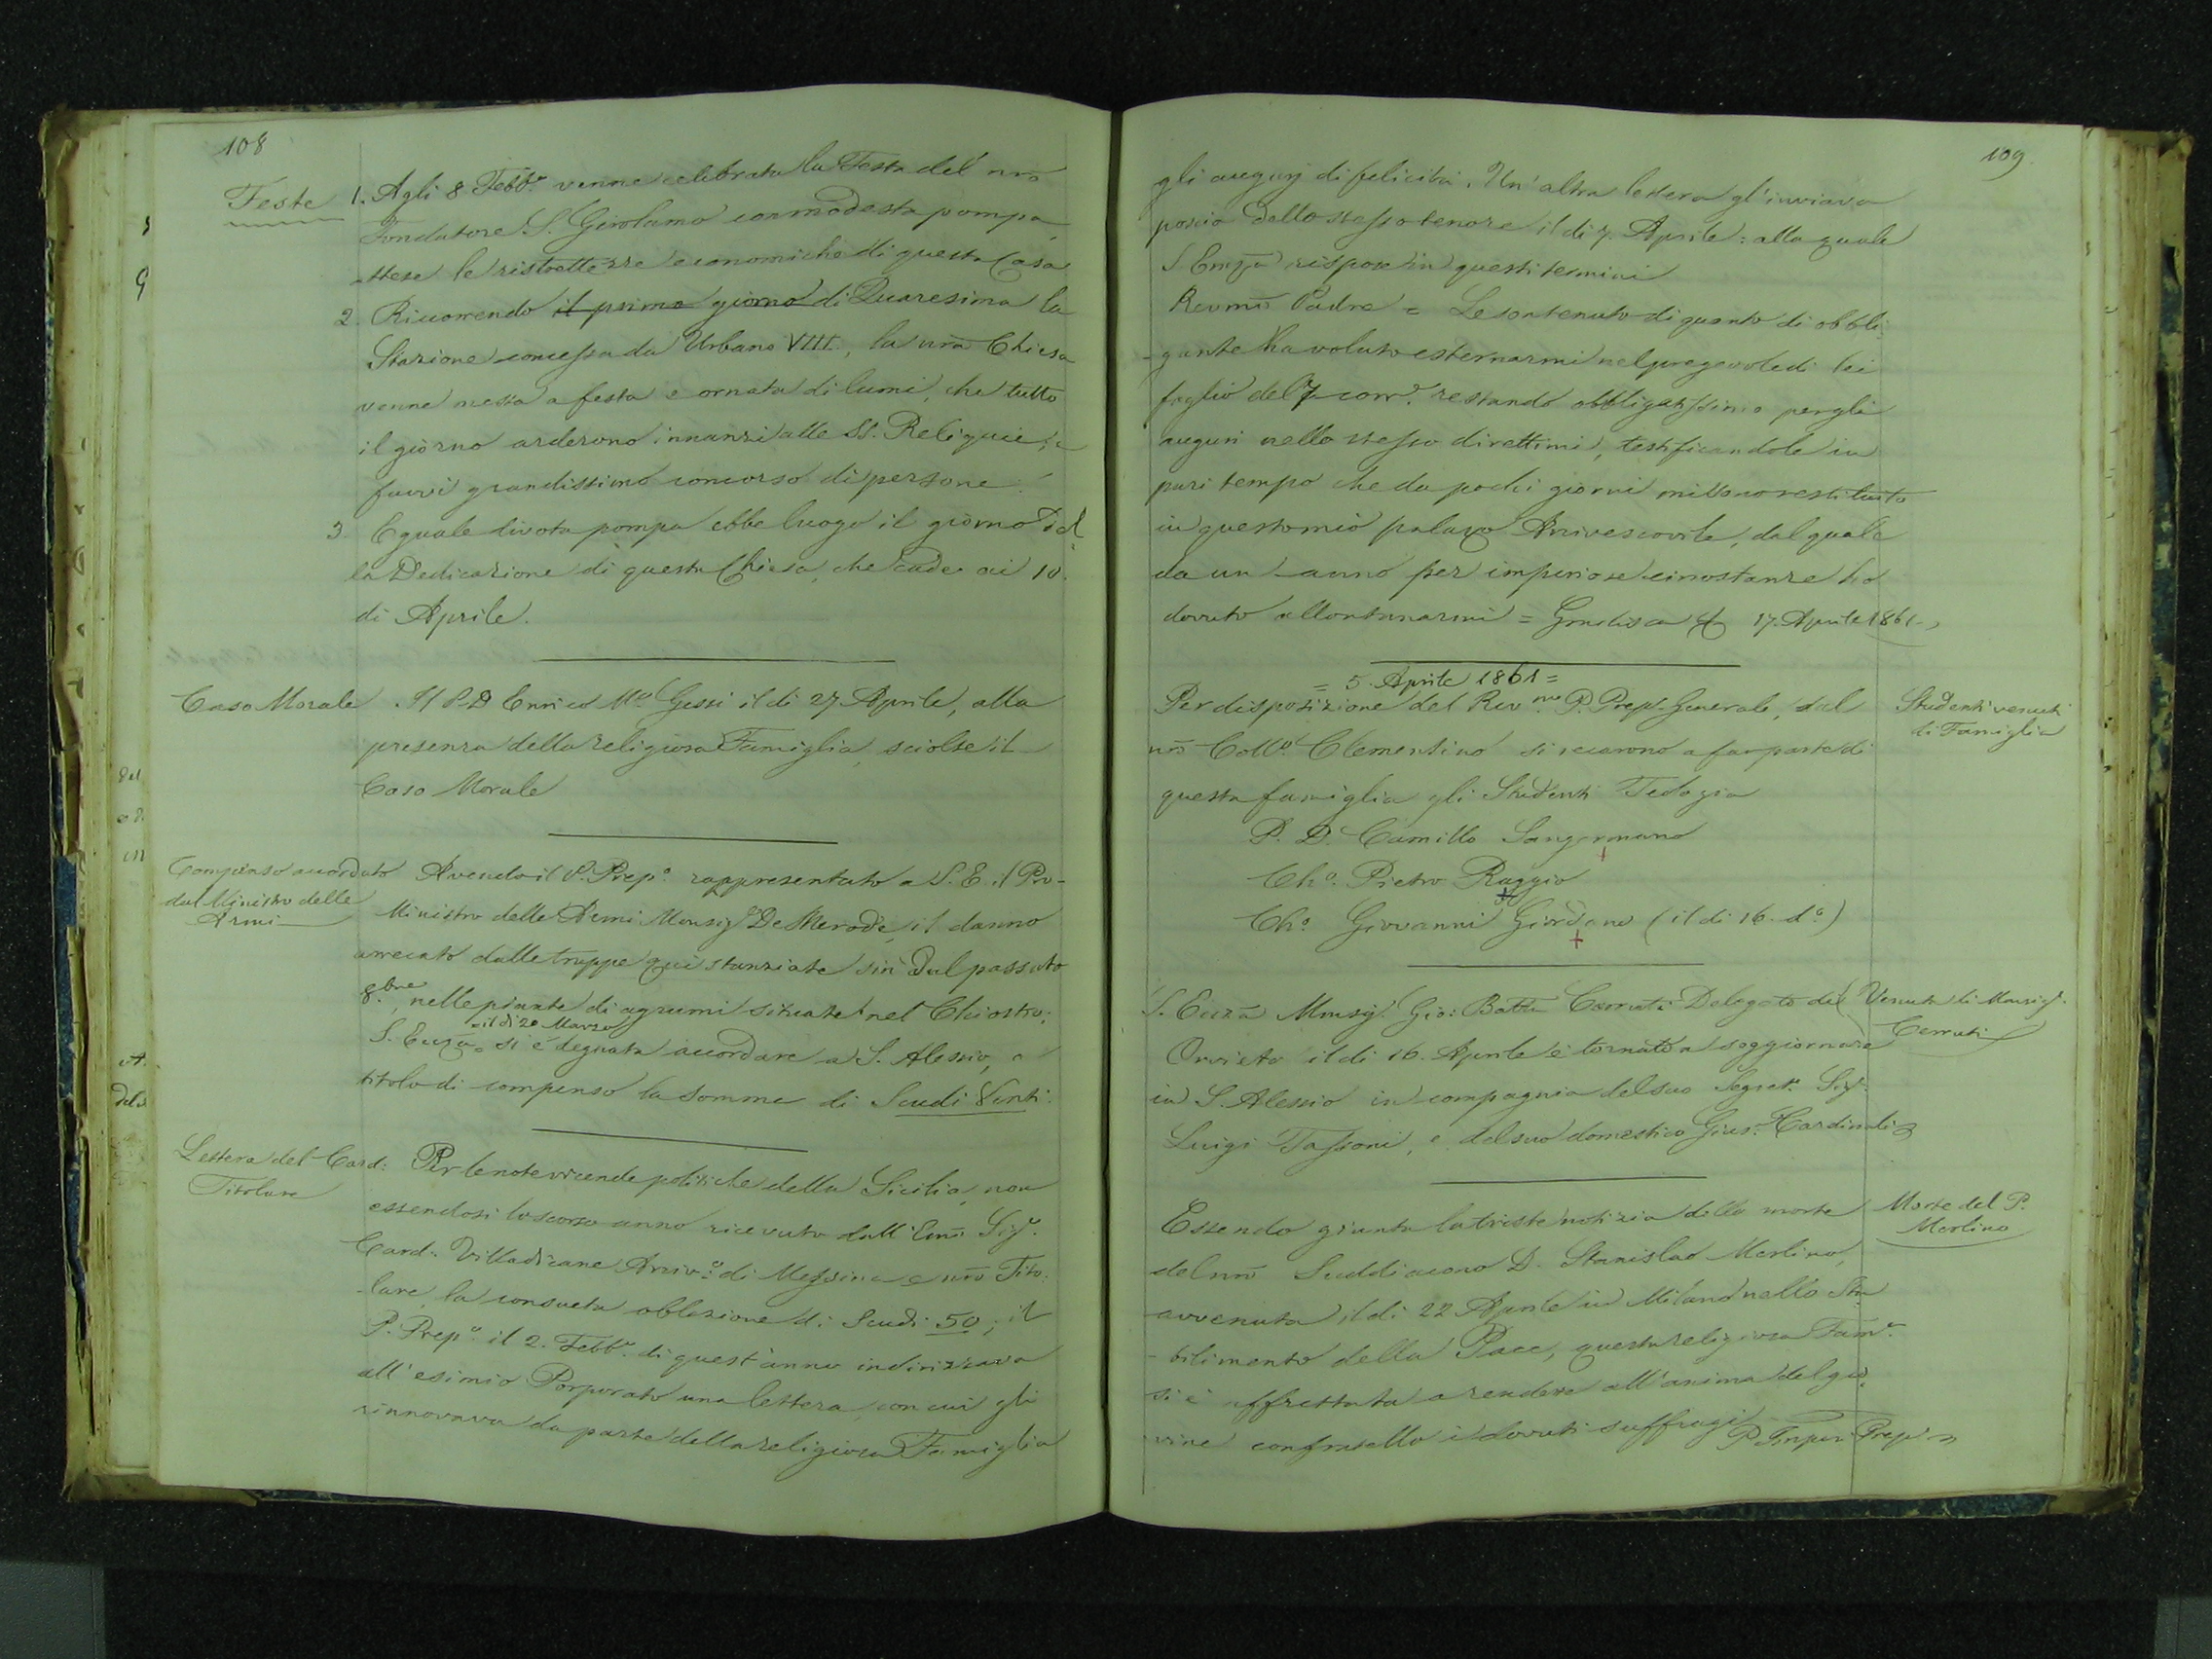 108
Feste
1. Agli 8 Febb.º venne celebrata la Festa del nr̃o
Fondatore S. Girolamo con modesta pompa,
attese le ristrettezze economiche di questa Casa
2. Ricorrendo il primo giorno di Quaresima la
Stazione concessa da Urbano VIII., la nr̃a Chiesa
venne messa a festa e ornata di lumi, che tutto
il giorno arderono innanzi alle SS. Reliquie, e
fuvvi grandissimo concorso di persone.
3 Eguale divota pompa ebbe luogo il giorno del
la Dedicazione di questa Chiesa, che cade ai 10.
di Aprile.
Caso Morale
Il P. D Enrico M.ª Gessi il di 27 Aprile, alla
presenza della religiosa Famiglia, sciolse il
Caso Morale
Compenso accordato
dal Ministro delle
Armi
Avendo il P. Prep.º rappresentato a S. E. il Pro-
Ministro delle Armi Monsig.r De Merode, il danno
arrecato dalle truppe qui stanziate sin dal passato
8.bre, nelle piante di agrumi situate nel Chiostro;
il di 20 Marzo
S. Ecc̃za si è degnata accordare a S. Alessio, a
titolo di compenso la somma di Scudi Venti.
Lettera del Card:
Titolare
Per le note vicende politiche della Sicilia, non
essendosi lo scorso anno ricevuto dall' Em̃o Sig.r
Card: Villadicane Arciv.º di Messina e nr̃o Tito-
lare, la consueta oblazione di Scudi 50; il
P. Prep.º il 2. Febb.º di quest'anno indirizzava
all' esimio Porporato una lettera, con cui gli
rinnovava da parte della religiosa Famiglia
109.
gli augurj di felicità. Un' altra lettera gl' inviava
poscia dello stesso tenore il di 7. Aprile: alla quale
S. Em̃za rispose in questi termini
Revm̃o Padre = Le son tenuto di quanto di obbli-
gante ha voluto esternarmi nel pregevole di lei
foglio del 7 corr.e restando obbligatissimo per gli
auguri nello stesso direttimi, testificandole in
pari tempo che da pochi giorni mi sono restituito
in questo mio palazzo Arcivescovile, dal quale
da un anno per imperiose circostanze ho
dovuto allontanarmi = 17. Aprile 1861.
= 5. Aprile 1861 =
Per disposizione del Rev.mo P. Prep. Generale, dal
nr̃o Coll.º Clementino si recarono a far parte di
questa famiglia gli Studenti Teologia
Studenti venuti
di Famiglia
P. D. Camillo Sangermano
Ch.º Pietro Raggio
Ch.º Giovanni Giordano (il di 16. d.º)
S. Ecc̃za Monsig.r Gio: Batta Cerruti Delegato di
Orvieto il di 16. Aprile è tornato a soggiornare
in S. Alessio in compagnia del suo Segret.º Sig.r
Luigi Tassoni, e del suo domestico Gius.e Cardinali
Venuta di Monsig.r
Cerruti
Essendo giunta la triste notizia della morte
del nr̃o Suddiacono D. Stanislao Merlino,
avvenuta il di 22 Aprile in Milano nello Sta
bilimento della Pace, questa religiosa Fam.ª
si è affrettata a rendere all'anima del gio-
vine confratello i dovuti suffragi
Morte del P.
Merlino